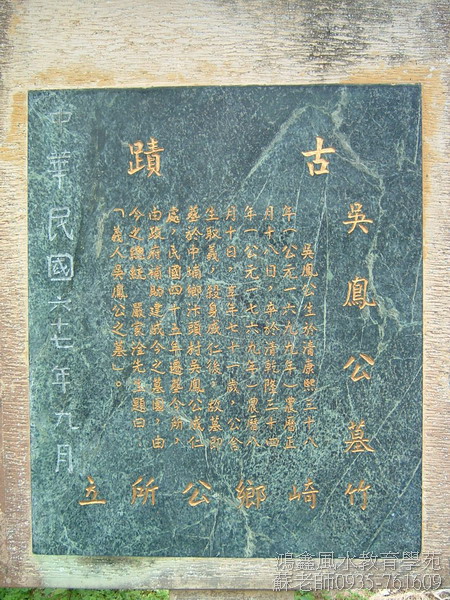 古蹟
吳鳳公墓
吳鳳公生於清康熙三十八
年(公元一六九九年)農曆正
月十八日,卒於清乾隆三十四
年(公元一七六九年)農曆八
月十日,享年七十一歲,公舍
生取義,殺身成仁後,故墓即
墓於中埔鄉汴頭村吳鳳公成仁
處,民國四十五年遷墓今所,
由政府補助建成今之墓園,由
今之總統 嚴家淦先生題曰
「義人吳鳳公之墓」。
竹崎鄉公所立
中華民國六十七年九月
鴻鑫風水教育學苑
蘇老師0935-761609